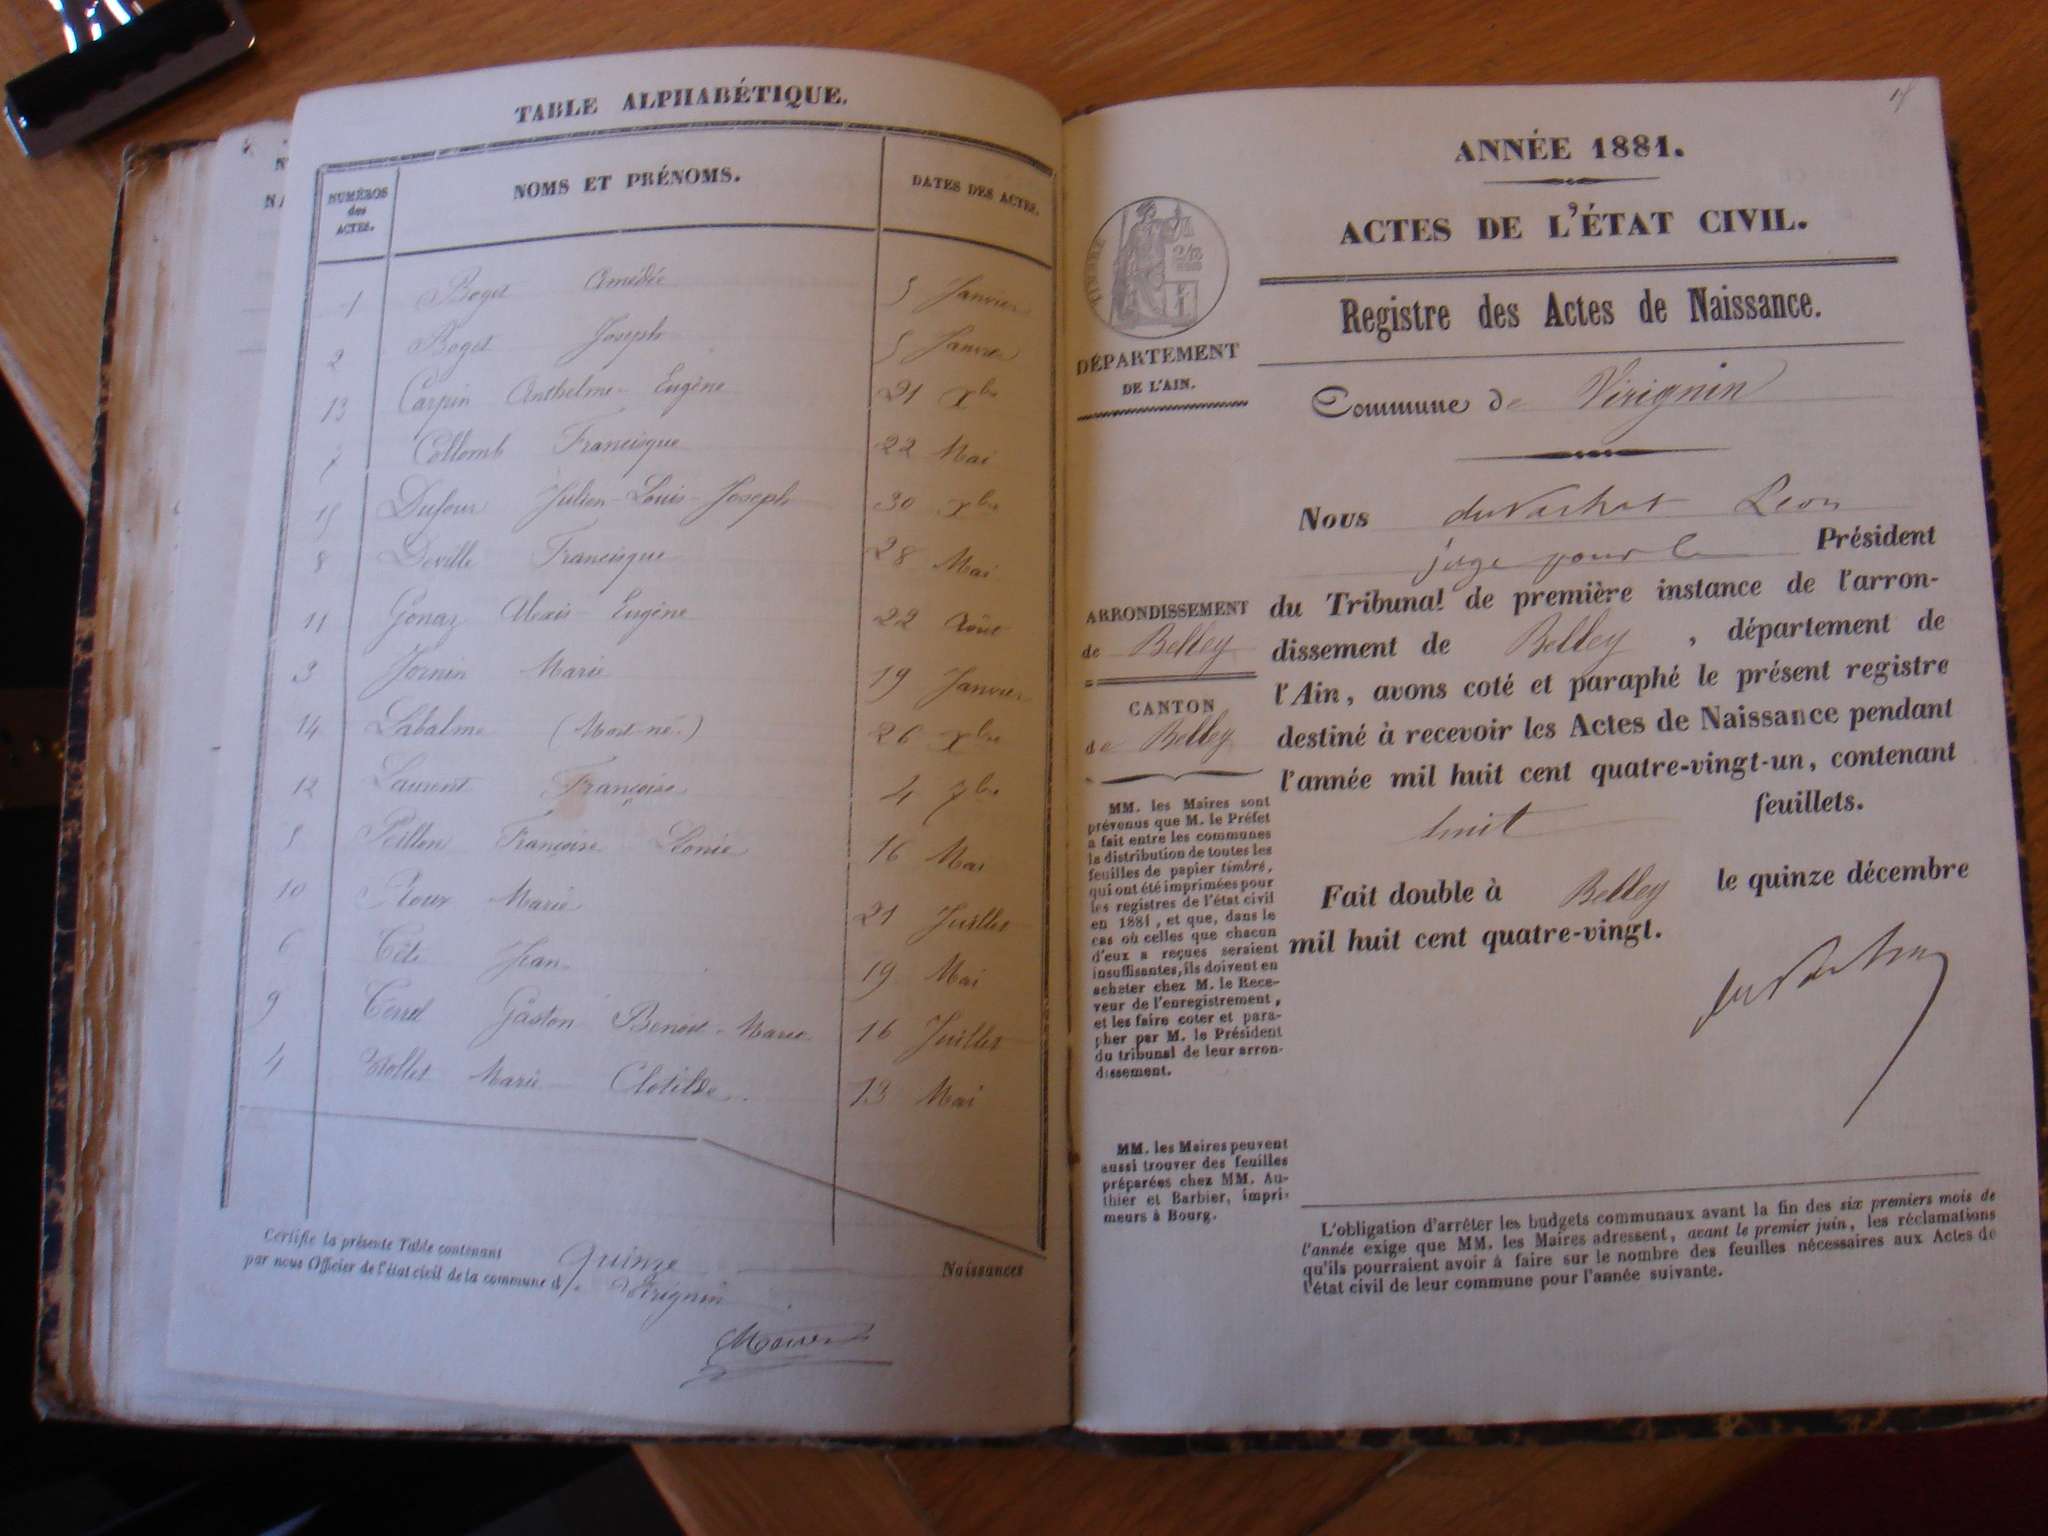 TABLE ALPHABÉTIQUE.
NUMÉROS des ACTES.
NOMS ET PRÉNOMS.
DATES DES ACTES.
1 Boget Amédée 5 Janvier
2 Boget Joseph 5 Janvier
13 Carpin Anthelme-Eugène 21 Xbre
7 Collomb Francisque 22 Mai
15 Dufour Julien-Louis-Joseph 30 Xbre
8 Deville Francisque 28 Mai
11 Gonaz Alexis-Eugène 22 Août
3 Jornin Marie 19 Janvier
14 Labalme (Mort-né) 26 Xbre
12 Laurent Françoise 4 7bre
5 Peillon Françoise Léonie 16 Mai
10 Roux Marie 21 Juillet
6 Jean 19 Mai
9 Gaston Benoit-Marie 16 Juillet
4 Marie Clotilde 13 Mai
Certifie la présente Table contenant quinze Naissances
par nous Officier de l'état civil de la commune de Virignin
ANNÉE 1881.
ACTES DE L'ÉTAT CIVIL.
Registre des Actes de Naissance.
TIMBRE
DÉPARTEMENT
DE L'AIN.
Commune de Virignin
Nous duVachat Leon
juge pour le Président
du Tribunal de première instance de l'arron-
dissement de Belley, département de
l'Ain, avons coté et paraphé le présent registre
destiné à recevoir les Actes de Naissance pendant
l'année mil huit cent quatre-vingt-un, contenant
huit feuillets.
Fait double à Belley le quinze décembre
mil huit cent quatre-vingt.
ARRONDISSEMENT
de Belley
CANTON
de Belley
MM. les Maires sont
prévenus que M. le Préfet
a fait entre les communes
la distribution de toutes les
feuilles de papier timbré,
qui ont été imprimées pour
les registres de l'état civil
en 1881, et que, dans le
cas où celles que chacun
d'eux a reçues seraient
insuffisantes, ils doivent en
acheter chez M. le Rece-
veur de l'enregistrement,
et les faire coter et para-
pher par M. le Président
du tribunal de leur arron-
dissement.
MM. les Maires peuvent
aussi trouver des feuilles
préparées chez MM. Au-
thier et Barbier, impri-
meurs à Bourg.
L'obligation d'arrêter les budgets communaux avant la fin des six premiers mois de
l'année exige que MM. les Maires adressent, avant le premier juin, les réclamations
qu'ils pourraient avoir à faire sur le nombre des feuilles nécessaires aux Actes de
l'état civil de leur commune pour l'année suivante.